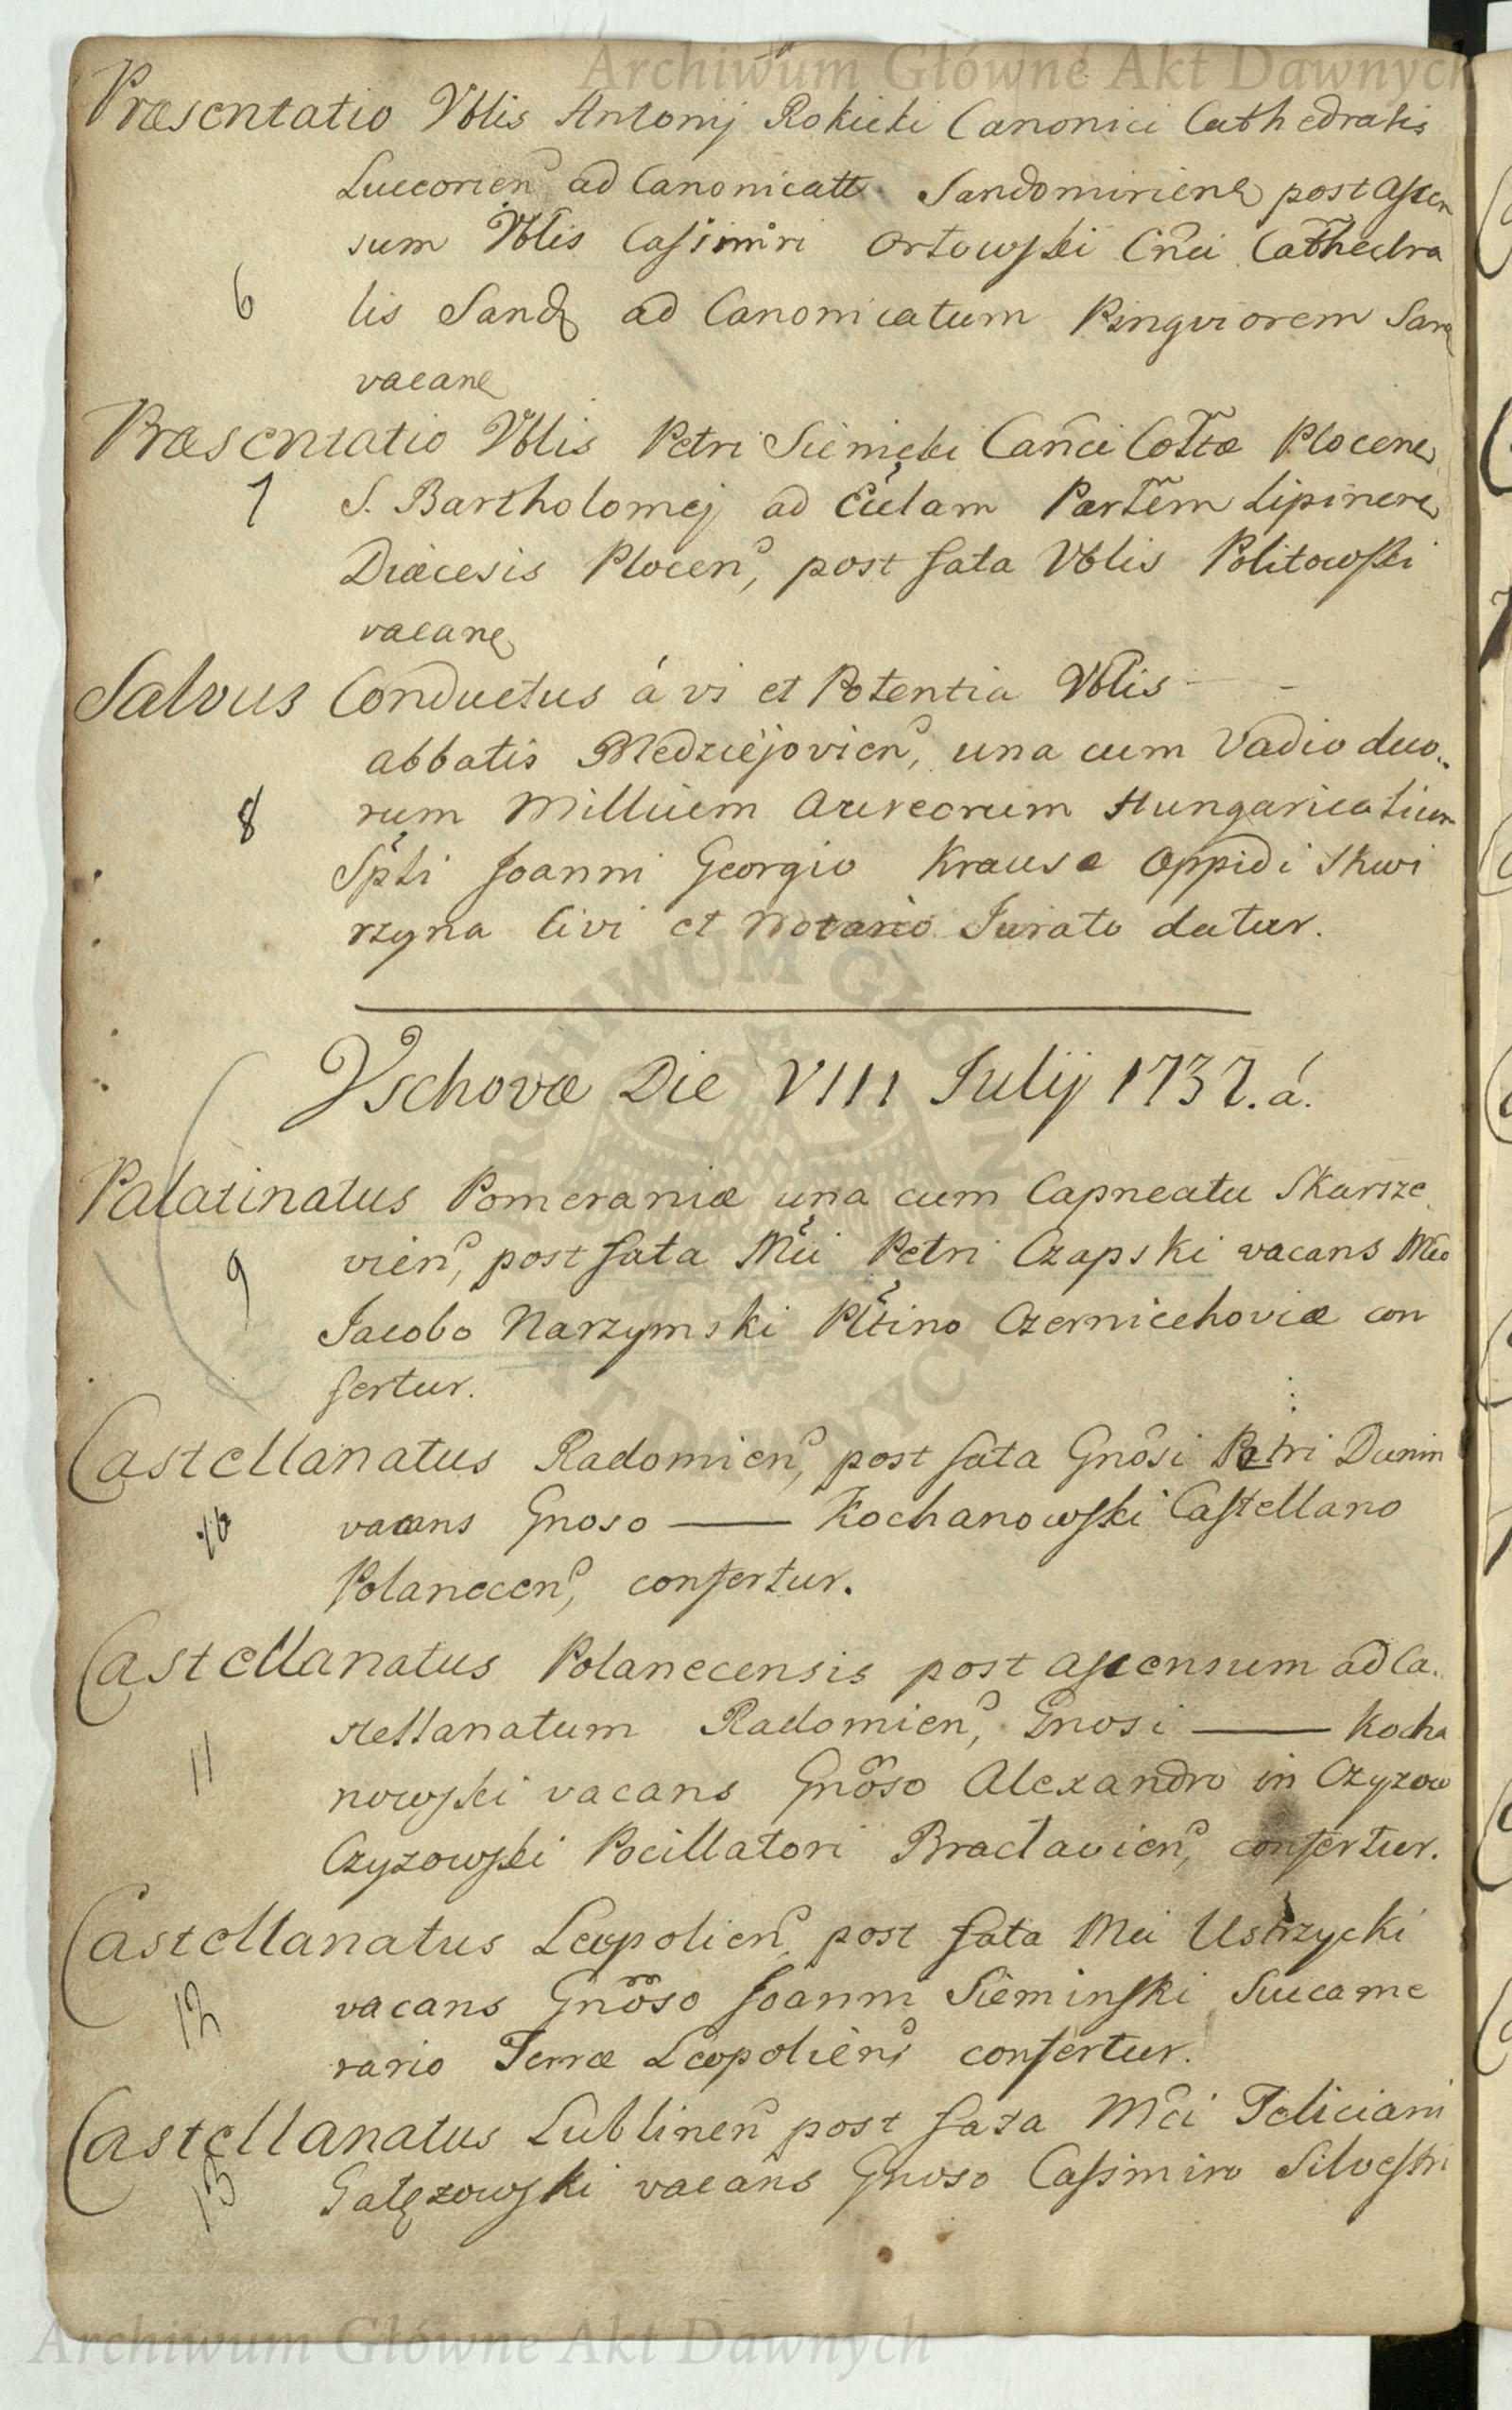 Archiwum Główne Akt Dawnych
Præsentatio Vblis Antonij Rokicki Canonici Cathedralis
Luccorien, ad Canonicatt. Sandomirien post ascen
sum Vblis Casimiri Orłowski Cnci Cathedra
6 lis Sand ad Canonicatum Pingviorem San
vacan
Præsentatio Vblis Petri Sienicki Canci Coltæ Plocen
7 S. Bartholomej ad Ecclam Partem Lipinen
Diæcesis Plocen, post fata Vblis Politowski
vacan
Salvus Conductus á vi et Potentia Vblis - -
abbatis Mledziejovien, una cum Vadio duo
8 rum Millium Aureorum Hungaricalium
Spti Joanni Georgio Krause Oppidi Skwi
rzyna Civi et Notario Jurato datur.
Vschovæ Die VIII Julij 1737. á.
Palatinatus Pomeraniæ una cum Capneatu Skarsze
9 vien, post fata Mci Petri Czapski vacans Mco
Jacobo Narzymski Pltino Czerniechoviæ con
fertur.
Castellanatus Radomien, post fata Gnosi Petri Dunin
10 vacans Gnoso — Kochanowski Castellano
Polanecen, confertur.
Castellanatus Polanecensis post ascensum ad Ca
11 stellanatum Radomien, Gnosi — Kocha
nowski vacans Gnoso Alexandro in Czyzow
Czyzowski Pocillatori Bracłavien, confertur.
Castellanatus Leopolien, post fata Mci Ustrzycki
12 vacans Gnoso Joanni Sieminski Succame
rario Terræ Leopolien, confertur.
Castellanatus Lublinen post fata Mci Feliciani
13 Gałęzowski vacans Gnoso Casimiro Silvestri
Archiwum Główne Akt Dawnych